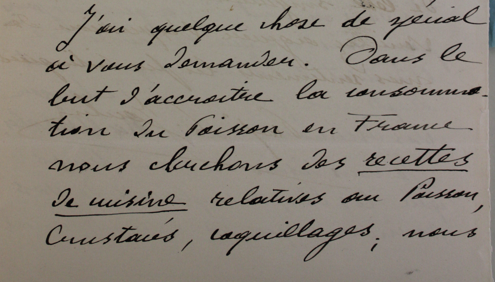 J'ai quelque chose de spécial
à vous demander. Dans le
but d'accroitre la consomma-
tion du Poisson en France
nous cherchons des recettes
de cuisine relatives au Poisson,
Crustacés, coquillages, nous